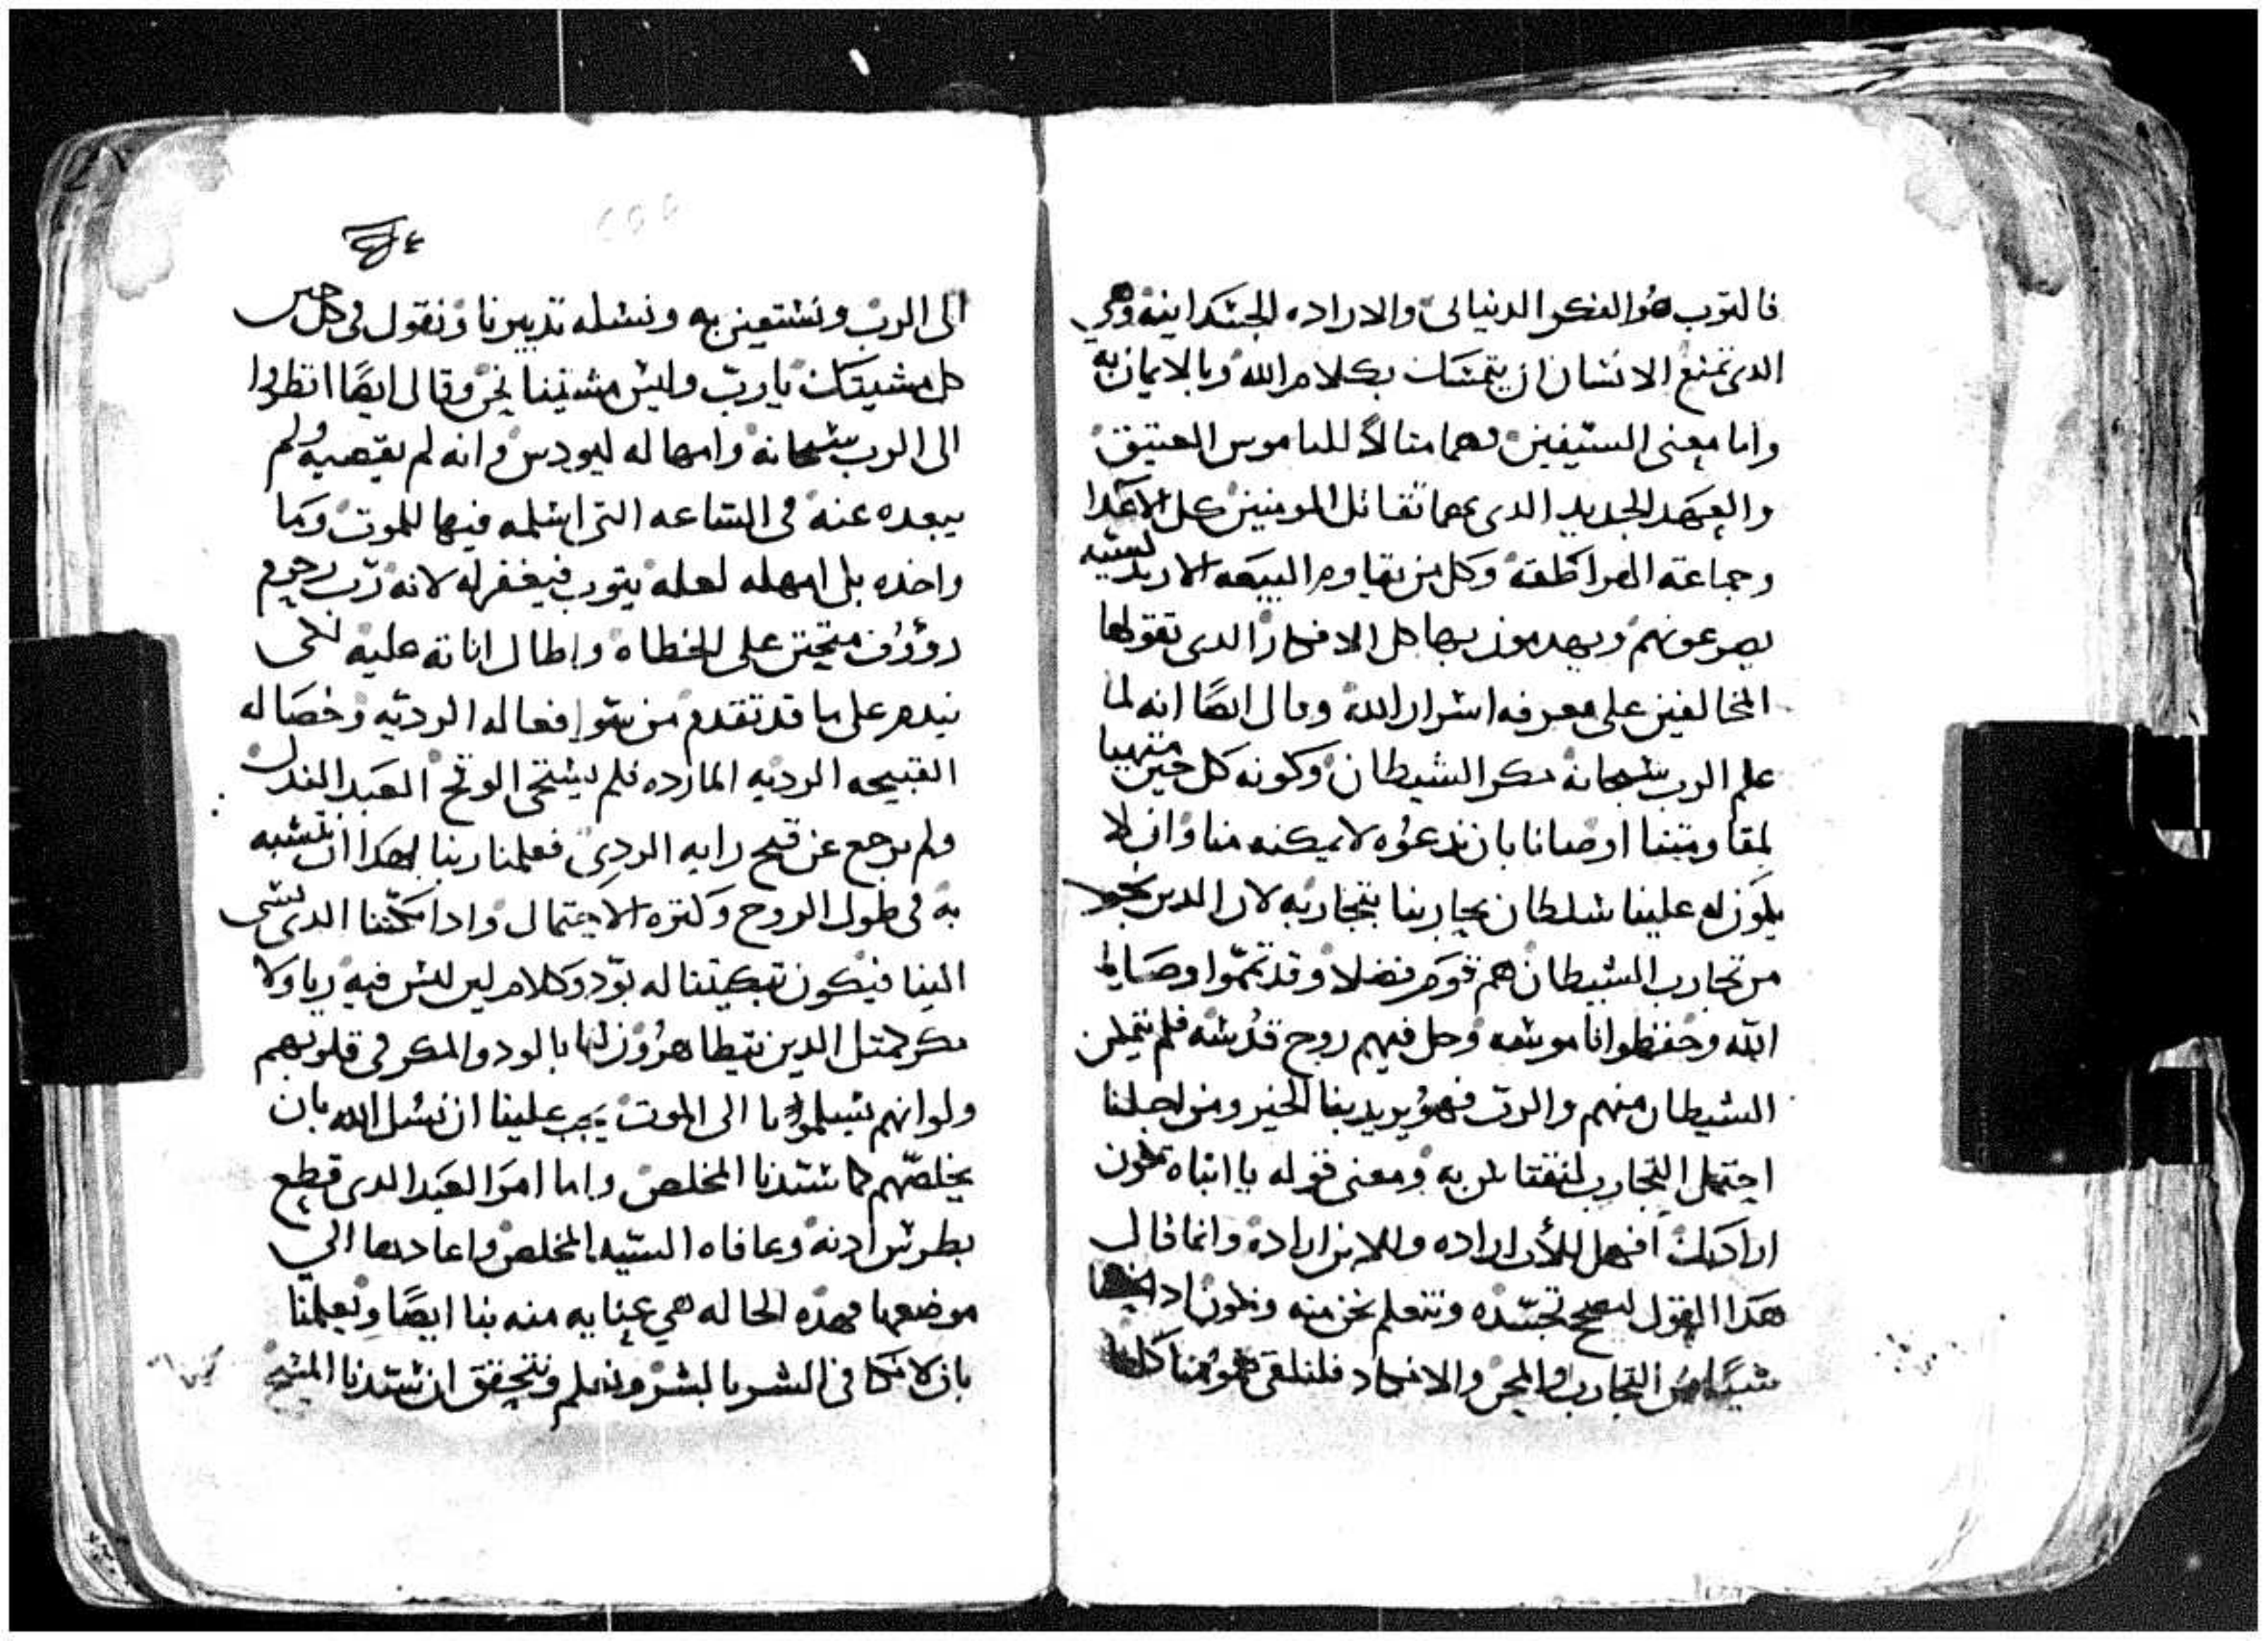 فالتوب هو الفكر الدنياني والاراده الجسدانيه وهي
الدي تمنع الانسان ان يتمسك بكلام الله وبالايمان به
واما معنى السيفين فهما مثالاً للناموس العتيق
والعهد الجديد الدي بهما تقاتل المومنين كل الاعدا
وجماعة الهراطقه وكل من يقاوم البيعه الارتدكسيه
يصرعونهم ويهدمون بها كل الافكار الدي تقولها
المخالفين على معرفه اسرار الله وقال ايضًا انه لما
علم الرب سبحانه مكر الشيطان وكونه كل حين متهيا
لمقاومتنا اوصانا بان ندعوه لا يمكنه منا وان لا
يكون له علينا سلطان يحاربنا بتجاربه لان الدين نجوا
من تجارب الشيطان هم قوم فضلا وقد تمموا وصايا
الله وحفظوا ناموسه وحل فيهم روح قدسه فلم يتمكن
الشيطان منهم والرب فهو يريد بنا الخير ومن اجلنا
احتمل التجارب لنقتدي به ومعنى قوله يا ابتاه تكون
ارادتك افهل للأب اراده وللابن اراده وانما قال
هدا القول ليصح تجسده ونتعلم نحن منه ونكون ادا
شيئًا من التجارب والمحن والانكاد فلنلقى همومنا كلها
الى الرب ونستعين به ونسله تدبيرنا ونقول في كل حين
كل مشيتك يا رب وليس مشيتنا نحن وقال ايضًا انظروا
الى الرب سبحانه وامهاله ليودس وانه لم يقصيه ولم
يبعده عنه في الساعه التي اسلمه فيها للموت وما
واخده بل امهله لعله يتوب فيغفر له لانه رب رحوم
رووف متحنن على الخطاه واطال اناته عليه لكى
يندم على ما قد تقدم من سوا افعاله الرديه وخصاله
القبيحه الرديه المارده فلم يستحى الوقح العبد الندل
ولم يرجع عن قبح رايه الردي فعلمنا ربنا بهدا ان نتشبه
به في طول الروح وكتره الاحتمال وادا بكتنا الدي يسى
الينا فيكون تبكيتنا له بتودد وكلام لين ليس فيه ريا ولا
مكر كمتل الدين يتظاهرون لنا بالود والمكر في قلوبهم
ولو انهم يسلمونا الى الموت يجب علينا ان نسل الله بان
يخلصهم كما سيدنا المخلص واما امر العبد الدى قطع
بطرس ادنه وعافاه السيد المخلص واعادها الي
موضعها فهده الحاله هي عنايه منه بنا ايضًا ويعلمنا
بان لا نكافى الشر بالشر ونعلم ونتحقق ان سيدنا المسيح